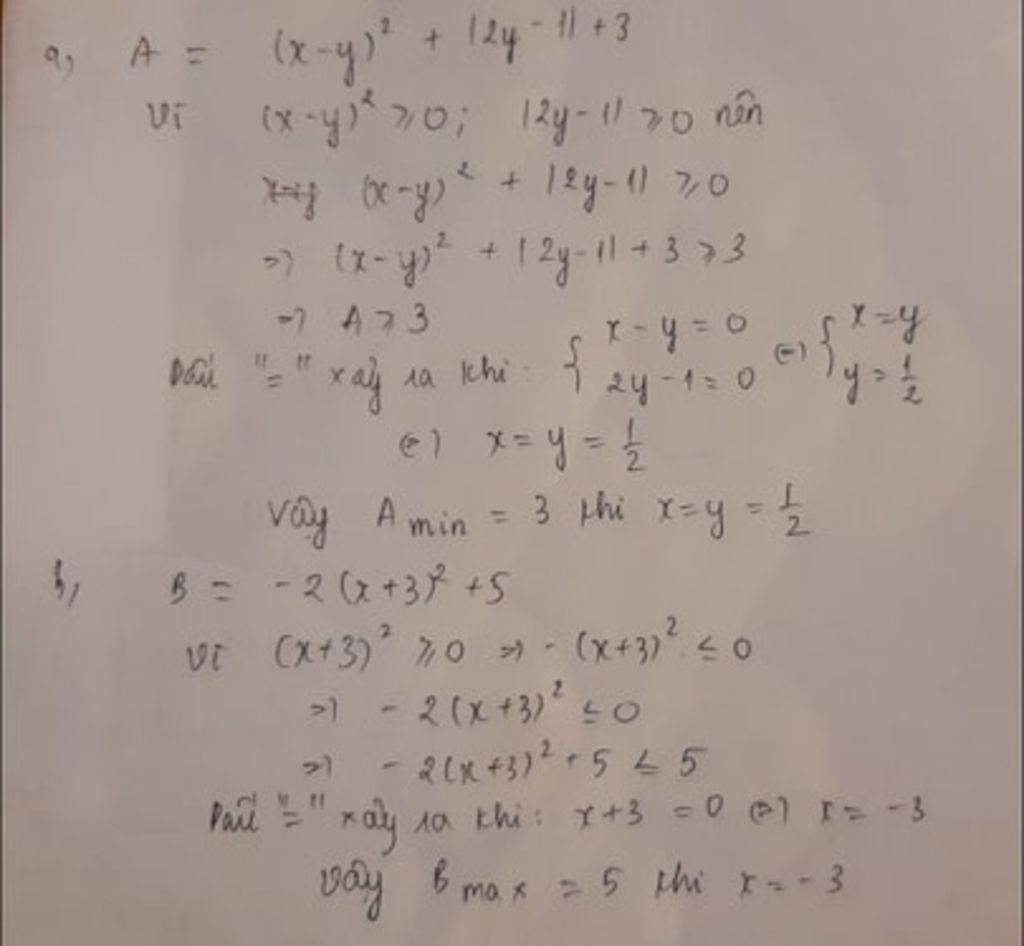 a, A = (x-y)² + |2y-1| + 3
Vì (x-y)² ≥ 0; |2y-1| ≥ 0 nên
(x-y)² + |2y-1| ≥ 0
=> (x-y)² + |2y-1| + 3 ≥ 3
=> A ≥ 3
Dấu "=" xảy ra khi: { x-y=0 2y-1=0 <=> { x=y y=1/2
<=> x=y=1/2
Vậy A min = 3 khi x=y=1/2
b, B = -2(x+3)² + 5
Vì (x+3)² ≥ 0 => -(x+3)² ≤ 0
=> -2(x+3)² ≤ 0
=> -2(x+3)² + 5 ≤ 5
Dấu "=" xảy ra khi: x+3 = 0 <=> x = -3
Vậy B max = 5 khi x = -3